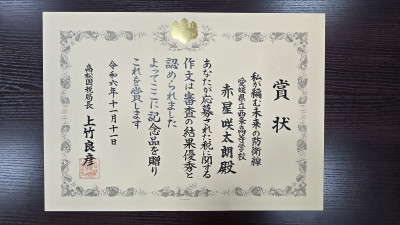 賞状
私が編む未来の防衛線
愛媛県立西条高等学校
赤星咲太朗殿
あなたが応募された税に関する
作文は審査の結果優秀と
認められました
よってここに記念品を贈り
これを賞します
令和六年十一月十一日
高松国税局長 上竹良彦